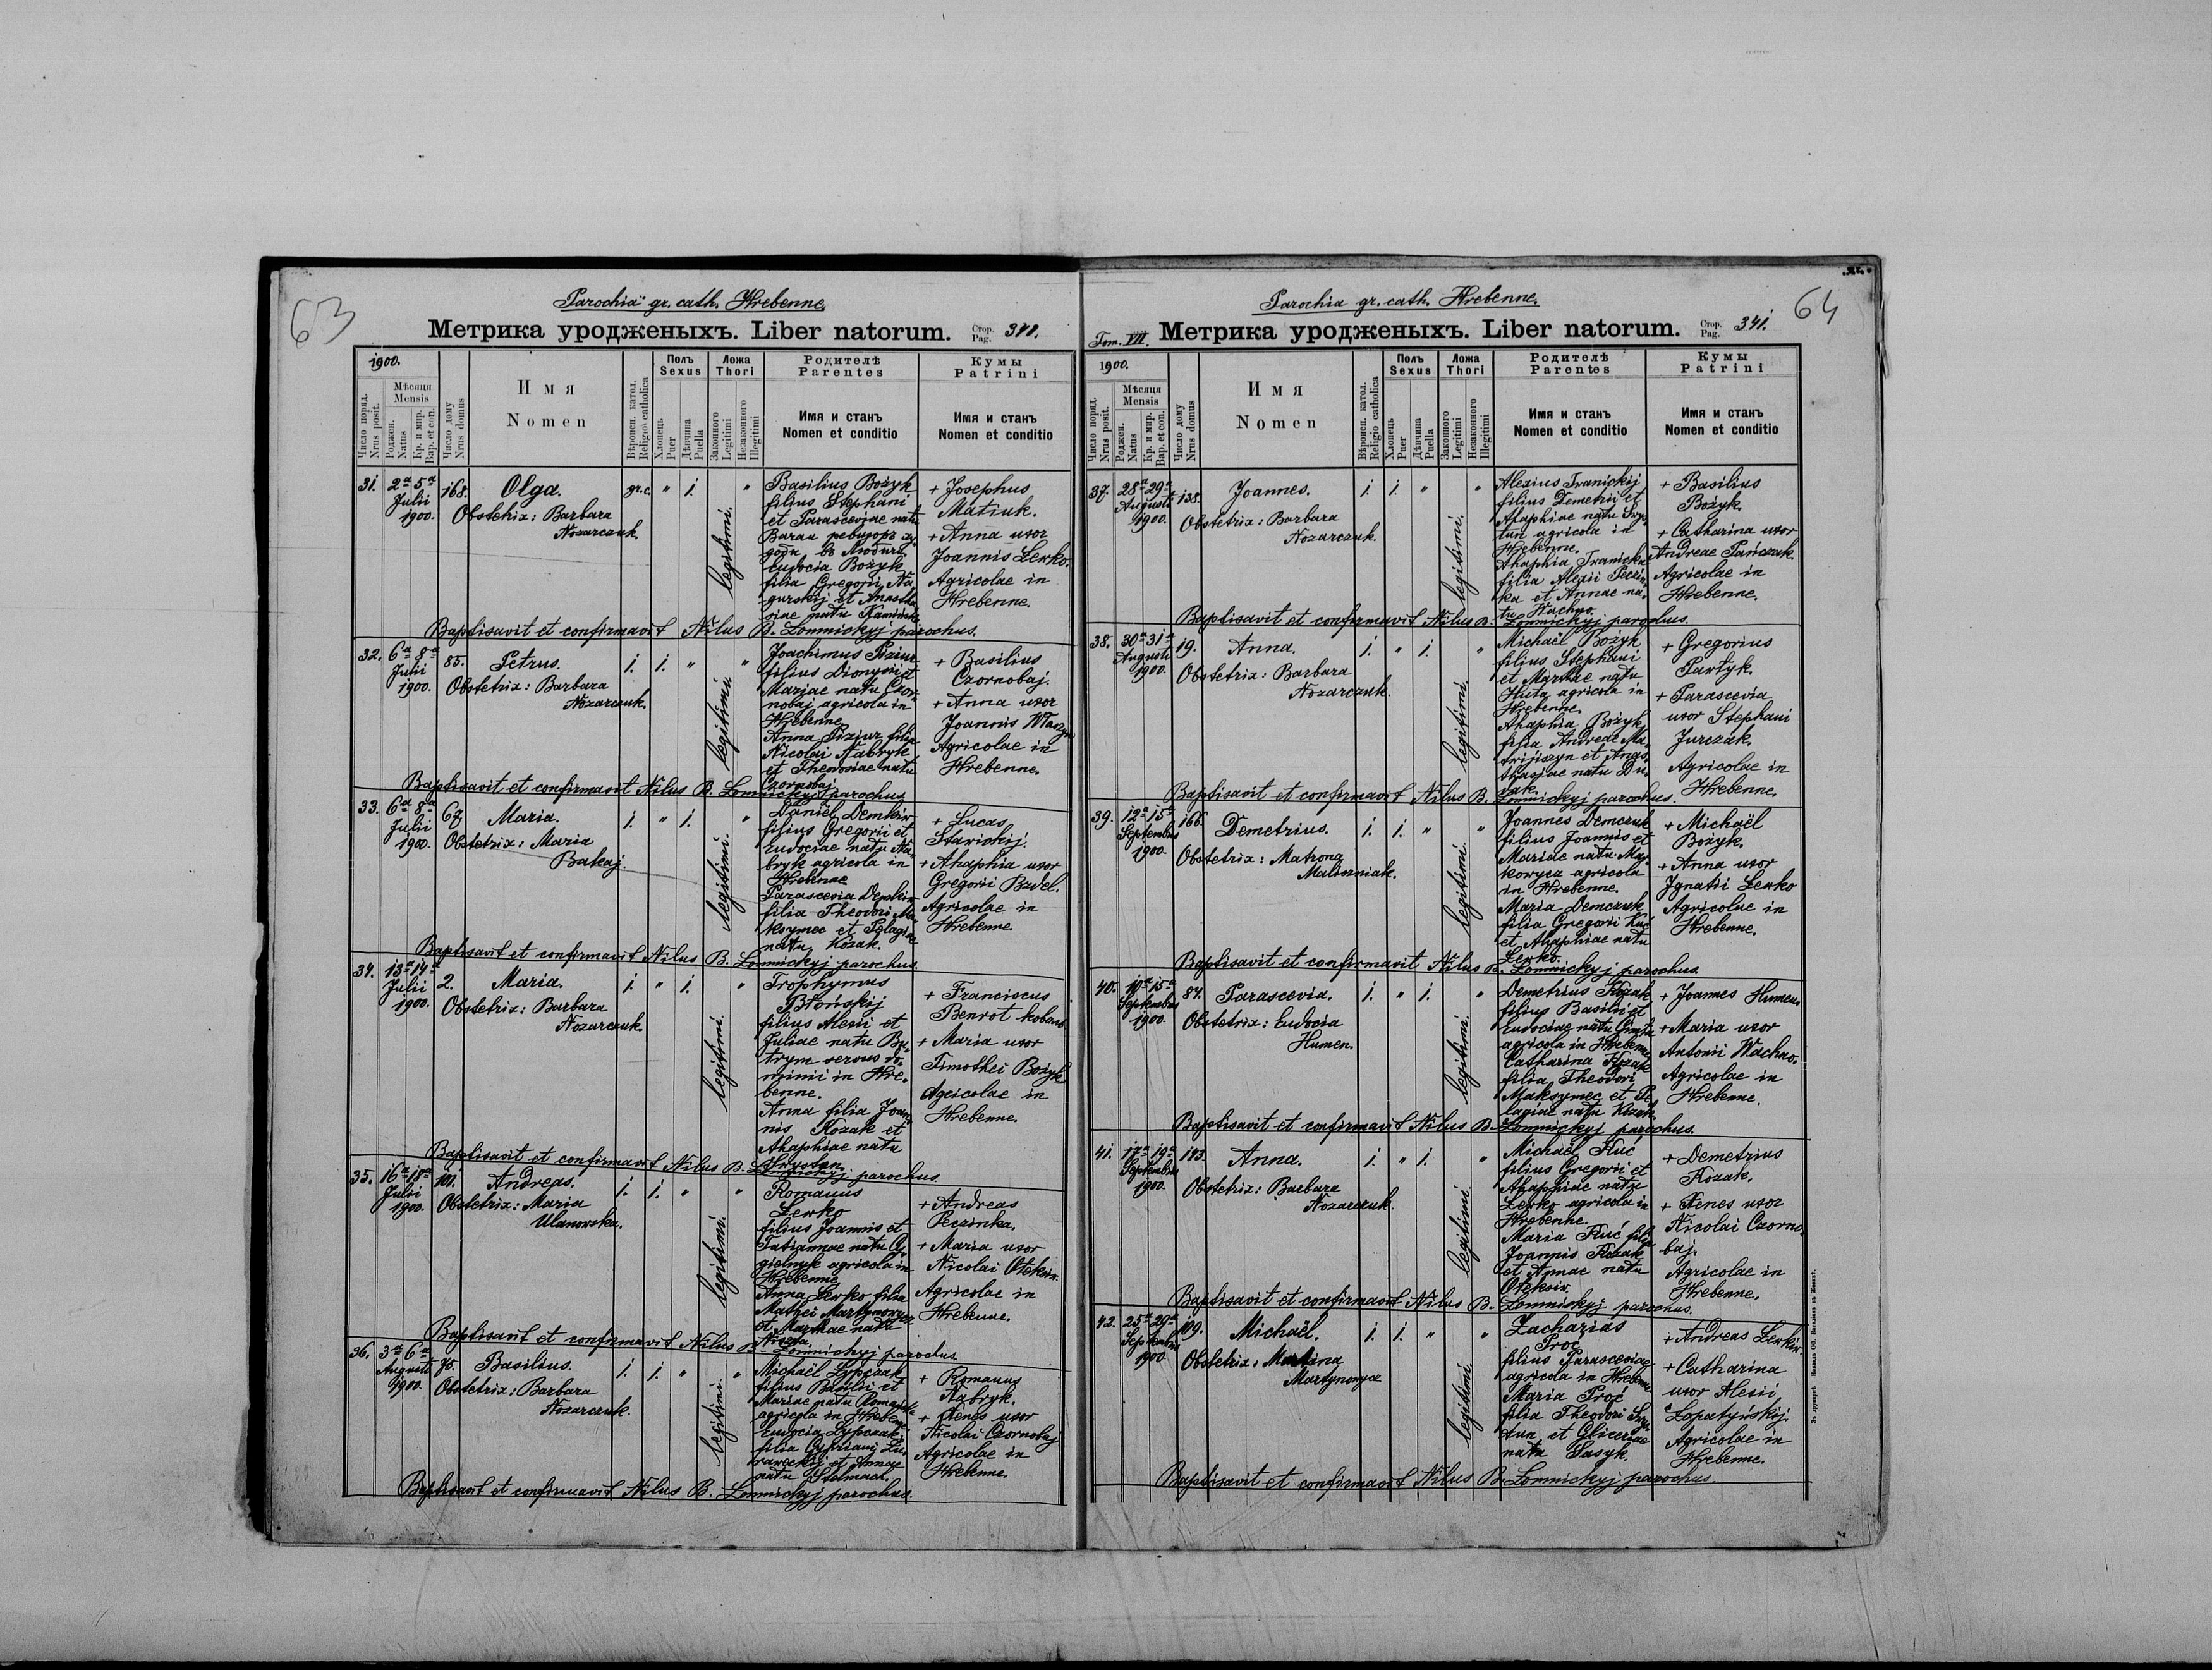 63
Parochia gr. cath. Hrebenne.
Метрика уродженыхъ. Liber natorum. Стор. Pag. 340.
1900.
Число поряд. Nrus posit.
Мѣсяця Mensis
Роджен. Natus
Кр. и мир. Bap. et con.
Число дому Nrus domus
Имя
Nomen
Вѣроисп. катол. Religio catholica
Полъ Sexus
Хлопець Puer
Дѣвчина Puella
Ложа Thori
Законного Legitimi
Незаконного Illegitimi
Родителѣ Parentes
Имя и станъ
Nomen et conditio
Кумы Patrini
Имя и станъ
Nomen et conditio
31. 2ª 5ª Julii 1900. 168. Olga. gr.c. " 1. legitimi. "
Obstetrix: Barbara
Nozarczuk.
Basilius Bożyk
filius Stephani
et Parasceviae natu
Baran
Eudocia Bożyk
filia Gregorii Na
gurskij et Anastha
siae natu
+ Josephus
Matiuk.
+ Anna uxor
Joannis Lewko.
Agricolae in
Hrebenne.
Baptisavit et confirmavit Nilus B. Lomnickyj parochus.
32. 6ª 8ª Julii 1900. 85. Petrus. 1. 1. " legitimi. "
Obstetrix: Barbara
Nozarczuk.
Joachimus Piziur
filius Dionysii et
Mariae natu Czor
nobaj agricola in
Hrebenne
Anna Piziur filia
Nicolai Nabryk
et Theodosiae natu
Czornobaj
+ Basilius
Czornobaj.
+ Anna uxor
Joannis
Agricolae in
Hrebenne.
Baptisavit et confirmavit Nilus B. Lomnickyj parochus
33. 6ª 8ª Julii 1900. 67 Maria. 1. " 1. legitimi. "
Obstetrix: Maria
Bakaj.
Daniël Demkiw
filius Gregorii et
Eudociae natu Na
bryk agricola in
Hrebenne
Parascevia Demkiw
filia Theodori Ma
ksymec et Pelagiae
natu Kozak.
+ Lucas
Stawickij.
+ Ahaphia uxor
Gregorii
Agricolae in
Hrebenne.
Baptisavit et confirmavit Nilus B. Lomnickyj parochus.
34. 13ª 14ª Julii 1900. 2. Maria. 1. " 1. legitimi. "
Obstetrix: Barbara
Nozarczuk.
Trophymus
Błonskij
filius Alexii et
Juliae natu Bu
trym servus do
minii in Hre
benne.
Anna filia Joan
nis Kozak et
Ahaphiae natu
+ Franciscus
+ Maria uxor
Timothei Bożyk
Agricolae in
Hrebenne.
Baptisavit et confirmavit Nilus B. Lomnickyj parochus.
35. 16ª 18ª Julii 1900. 101. Andreas. 1. 1. " legitimi. "
Obstetrix: Maria
Ulanowska.
Romanus
Lewko
filius Joannis et
Tatiannae natu Cy
gielnyk agricola in
Hrebenne
Anna Lewko filia
Mathei Martynowycz
et Marthae natu
+ Andreas
Peczinka.
+ Maria uxor
Nicolai Oleksiw.
Agricolae in
Hrebenne.
Baptisavit et confirmavit Nilus B. Lomnickyj parochus
36. 3ª 6ª Augusti 1900. 75. Basilius. 1. 1. " legitimi. "
Obstetrix: Barbara
Nozarczuk.
Michaël Lypczak
filius Basilii et
Mariae natu
agricola in Hrebenne
Eudocia Lypczak
filia Cypriani
et Annae
natu Stelmach.
+ Romanus
Nabryk.
+ Xenes uxor
Nicolai Czornobaj
Agricolae in
Hrebenne.
Baptisavit et confirmavit Nilus B. Lomnickyj parochus.
64
Parochia gr. cath. Hrebenne.
Tom. VII. Метрика уродженыхъ. Liber natorum. Стор. Pag. 341.
1900.
Число поряд. Nrus posit.
Мѣсяця Mensis
Роджен. Natus
Кр. и мир. Bap. et con.
Число дому Nrus domus
Имя
Nomen
Вѣроисп. катол. Religio catholica
Полъ Sexus
Хлопець Puer
Дѣвчина Puella
Ложа Thori
Законного Legitimi
Незаконного Illegitimi
Родителѣ Parentes
Имя и станъ
Nomen et conditio
Кумы Patrini
Имя и станъ
Nomen et conditio
37. 28ª 29ª Augusti 1900. 138. Joannes. 1. 1. " legitimi. "
Obstetrix: Barbara
Nozarczuk.
Alexius Iwanickij
filius Demetrii et
Ahaphiae natu Swy
tun agricola in
Hrebenne.
Ahaphia Iwanicka
filia Alexii Peczin
ka et Annae na
tu Wachno.
+ Basilius
Bożyk.
+ Catharina uxor
Andreae Pańczuk.
Agricolae in
Hrebenne.
Baptisavit et confirmavit Nilus B. Lomnickyj parochus.
38. 30ª 31ª Augusti 1900. 19. Anna. 1. " 1. legitimi. "
Obstetrix: Barbara
Nozarczuk.
Michaël Bożyk
filius Stephani
et Marthae natu
Huta agricola in
Hrebenne.
Ahaphia Bożyk
filia Andreae Ma
trijiszyn et Anas
thasiae natu Du
+ Gregorius
Partyk.
+ Parascevia
uxor Stephani
Jurczak.
Agricolae in
Hrebenne.
Baptisavit et confirmavit Nilus B. Lomnickyj parochus.
39. 12ª 15ª Septembris 1900. 166. Demetrius. 1. 1. " legitimi. "
Obstetrix: Matrona
Maliszniak.
Joannes Demczuk
filius Joannis et
Mariae natu
agricola
in Hrebenne.
Maria Demczuk
filia Gregorii Kuć
et Ahaphiae natu
Lewko.
+ Michaël
Bożyk.
+ Anna uxor
Ignatii Lewko
Agricolae in
Hrebenne.
Baptisavit et confirmavit Nilus B. Lomnickyj parochus.
40. 15ª Septembris 1900. 84. Parascevia. 1. " 1. legitimi. "
Obstetrix: Eudocia
Humen.
Demetrius Kozak
filius Basilii et
Eudociae natu
agricola in Hrebenne
Catharina Kozak
filia Theodori
Maksymec et Pe
lagiae natu Kozak.
+ Joannes Humen.
+ Maria uxor
Antonii Wachno.
Agricolae in
Hrebenne.
Baptisavit et confirmavit Nilus B. Lomnickyj parochus.
41. 17ª 19ª Septembris 1900. 183. Anna. 1. " 1. legitimi. "
Obstetrix: Barbara
Nozarczuk.
Michaël Kuć
filius Gregorii et
Ahaphiae natu
Lewko agricola in
Hrebenne.
Maria Kuć filia
Joannis Kozak
et Annae natu
Oleksiw.
+ Demetrius
Kozak.
+ Xenes uxor
Nicolai Czorno
baj.
Agricolae in
Hrebenne.
Baptisavit et confirmavit Nilus B. Lomnickyj parochus.
42. 25ª 29ª Septembris 1900. 109. Michaël. 1. 1. " legitimi. "
Obstetrix: Martina
Martynowycz
Zacharias
Proć
filius Parasceviae
agricola in Hrebenne
Maria Proć
filia Theodori Swy
tun et Gliceriae
natu Sasyk.
+ Andreas Lewkiw.
+ Catharina
uxor Alexii
Lopatyńskij.
Agricolae in
Hrebenne.
Baptisavit et confirmavit Nilus B. Lomnickyj parochus.